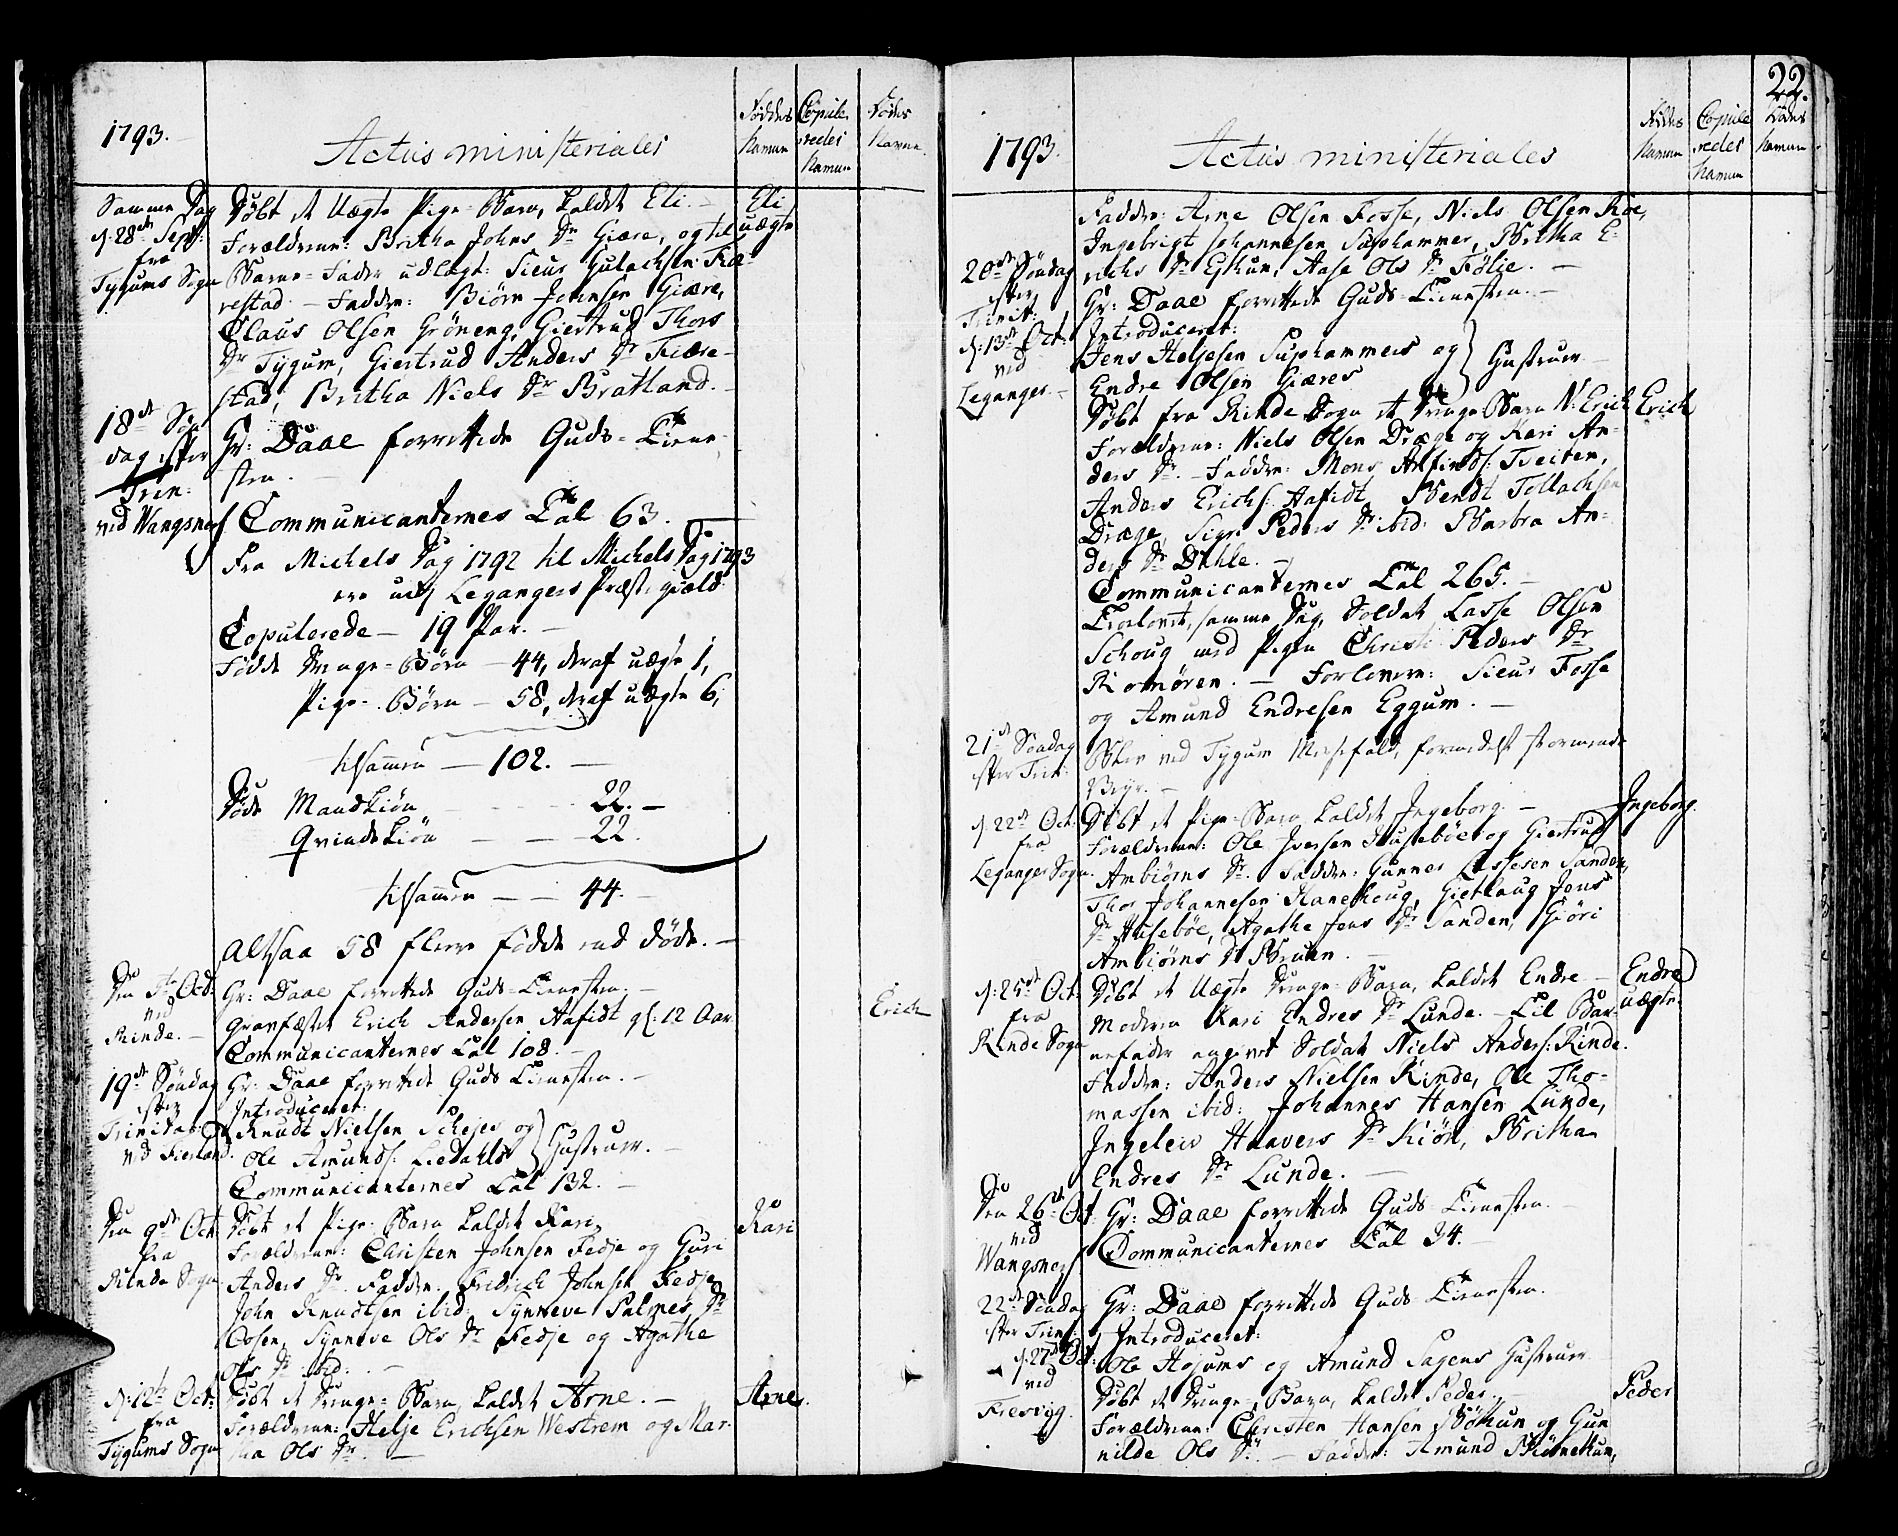 1793.
Actus ministeriales
Føddes Navne
Copule-redes Navne
Dødes Navne.
Samme Dag
d: 28de Sept:
fra
Tygums Sogn
Døbt et Uægte Pige-Barn, kaldet Eli. –
Eli
uægte
Forældrene: Britha Johns Dr Giære, og til
Barne-Fader udlagt: Sieur Gulachsen Fiæ-
restad. – Faddre: Biørn Johnsen Giære,
Claus Olsen Grøneng, Giertrud Thors
Dr Tygum, Giertrud Anders Dr Fiære-
stad, Britha Niels Dr Bratland. –
18de Søn
dag efter
Trin:
ved Wangsnes
Hr: Daae forrettede Guds-Tiene-
sten. –
Communicanternes Tal 63.
Fra Michels Dag 1792 til Michels Dag 1793
ere udi Legangers Præste-gield
Copulerede – 19 Par. –
Fødde Drenge-Børn – 44, deraf uægte 1,
Pige-Børn – 58, deraf uægte 6,
tilsammen – 102. –
Døde Mandkiøn – 22. –
Qvindekiøn – 22.
tilsammen – 44. –
Altsaa 58 flere fødde end døde. –
Den Oct.
ved
Rinde. –
Hr: Daae forrettede Guds-Tienesten. –
Gravfæstet Erich Andersen Aafidt gl: 12 Aar
Erich
Communicanternes Tal 108. –
19de Søndag
efter
Trinitat:
ved Fierland.
Hr: Daae forrettede Guds Tienesten. –
Introduceret:
Knudt Nielsen og
Ole Amunds: Liedahls
Hustruer. –
Communicanternes Tal 132. –
Den 9de Oct.
fra
Rinde Sogn
Døbt et Pige-Barn kaldet Kari.
Kari
Forældrene: Christen Johnsen Fedje og Guri
Anders Dr. Faddre: Fridrich Johnsen Fedje
John Knudtsen ibid: Synneve Palmes Dr
Ossen, Synneve Ols Dr Fedje og Agathe
Ols Dr ibid: –
d: 12te Oct:
fra
Tygums Sogn
Døbt et Drenge-Barn, kaldet Arne. –
Arne.
Forældrene: Helje Erichsen Westrem og Mar-
tha Ols Dr. –
22.
1793.
Actus ministeriales
Føddes Navne
Copule-redes Navne
Dødes Navne
Faddre: Arne Olsen Fosse, Niels Olsen Roe,
Ingebrigt Johannesen Suphammer, Britha E-
richs Dr Eschum, Aase Ols Dr Følie. –
20de Søndag
efter
Trinit:
d: 13de Oct:
ved
Leganger. –
Hr: Daae forrettede Guds-Tienesten. –
Introduceret:
Jens Heljesen Suphammers og
Endre Olsen Giæres
Hustruer –
Døbt fra Rinde Sogn et Drenge Barn N: Erich
Erich
Forældrene: Niels Olsen Dræge og Kari An-
ders Dr. – Faddre: Mons Arfinds: Tveiten,
Anders Erichs: Aafidt, Bendt Tollachsen
Dræge, Sigri Peders Dr ibid: Barbra An-
ders Dr Dahle. –
Communicanternes Tal 265. –
Trolovet, samme Dag, Soldat Lasse Olsen
Schoug med Pigen Christi Peders Dr
Romøren. – Forlovere: Sieur Fosse
og Amund Endresen Eggum. –
21de Søndag
efter Trin:
Blev ved Tygum Messefald, formedelst stormende
Veyr. –
d: 22de Oct:
fra
Leganger Sogn.
Døbt et Pige-Barn kaldet Ingeborg. –
Ingeborg.
Forældrene: Ole Iversen Husebøe og Giertrud
Ambiørns Dr. Faddre: Gunner Lassesen Sanden,
Thor Johannesen Hanehoug, Giertlaug Jens
Dr Husebøe, Agathe Jens Dr Sanden, Giøri
Ambiørns Dr Bruen. –
d: 25de Oct.
fra
Rinde Sogn
Døbt et Uægte Drenge-Barn, kaldet Endre –
Endre
uægte
Moderen Kari Endres Dr Lunde. – Til Bar-
nefader angivet Soldat Niels Anders: Rinde.
Faddre: Anders Nielsen Rinde, Ole Tho-
massen ibid: Johannes Hansen Lunde,
Ingeleiv Haavers Dr Kiøn, Britha
Endres Dr Lunde. –
Den 26de Oct.
ved
Wangsnes
Hr: Daae forrettede Guds-Tienesten. –
Communicanternes Tal 34. –
22de Søndag
efter Trin:
d: 27de Oct:
ved
Fresvig.
Hr: Daae forrettede Guds-Tienesten.
Introduceret:
Ole Højums og Amund Sagens Hustruer
Døbt et Drenge-Barn, kaldet Peder. –
Peder
Forældrene: Christen Hansen Bøthun og Gun
nilde Ols Dr. – Faddre: Amund Biønnethun,